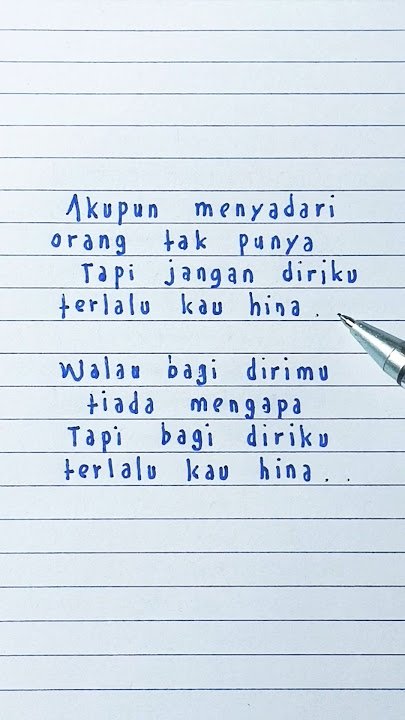 Akupun menyadari
orang tak punya
Tapi jangan diriku
terlalu kau hina .
Walau bagi dirimu
tiada mengapa
Tapi bagi diriku
terlalu kau hina . .